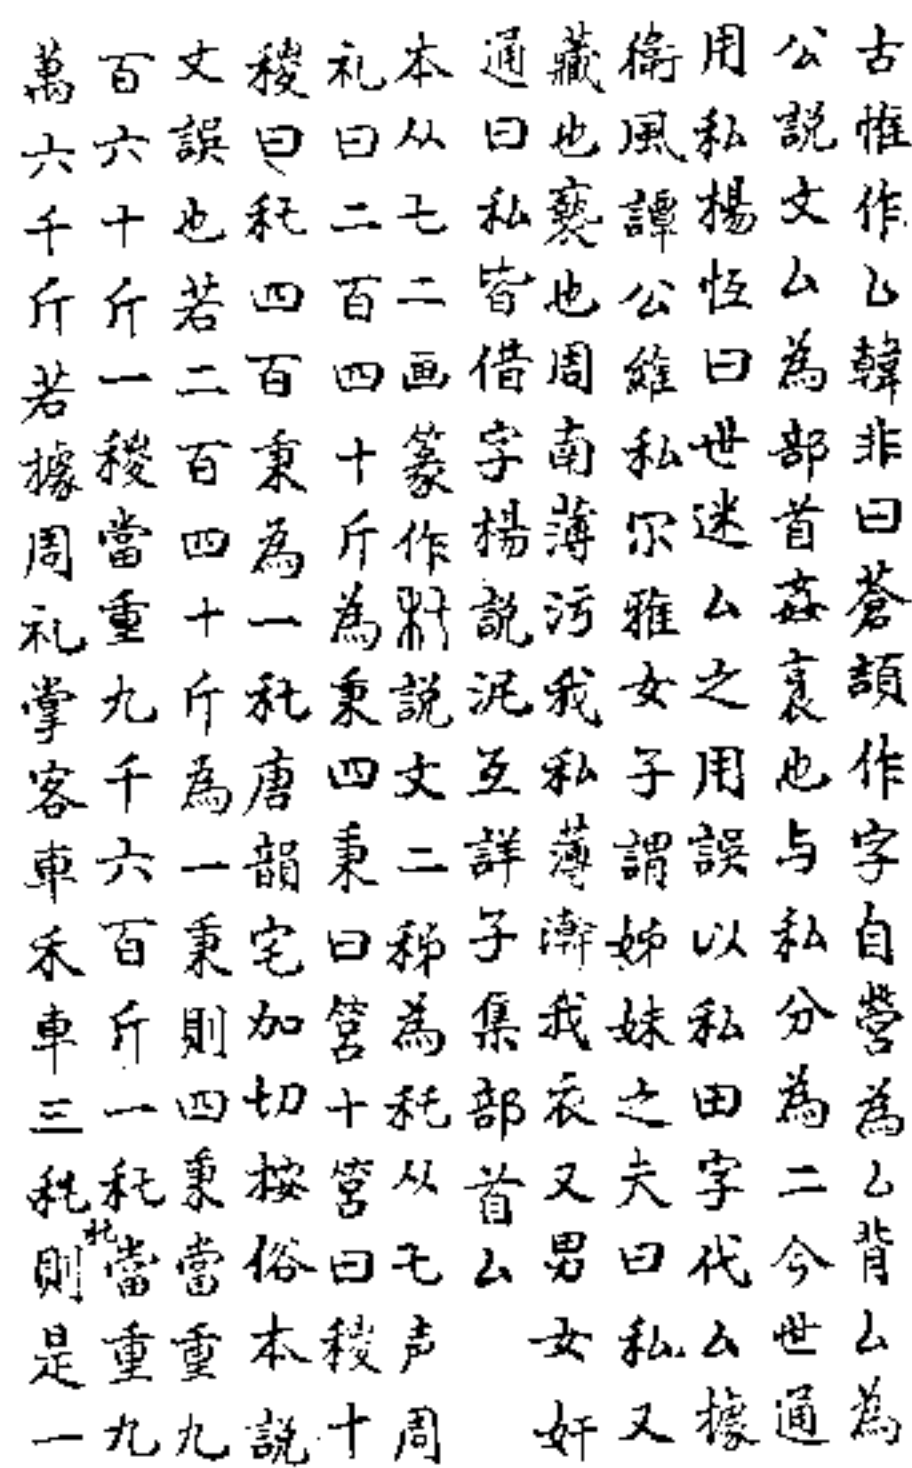 古惟作厶韓非曰蒼頡作字自營為厶背厶為
公説文厶為部首姦衺也与私分為二今世通
用私楊恆曰世迷厶之用誤以私田字代厶據
衛風譚公維私尔雅女子謂姊妹之夫曰私又
藏也褻也周南薄污我私薄澣我衣又男女奸
通曰私皆借字楊説泥互詳子集部首厶
本从乇二画篆作秅説文二秭為秅从乇声周
礼曰二百四十斤為秉四秉曰筥十筥曰稯十
稯曰秅四百秉為一秅唐韻宅加切按俗本説
文誤也若二百四十斤為一秉則四秉當重九
百六十斤一稯當重九千六百斤一秅當重九
萬六千斤若據周礼掌客車禾車三秅則是一
秅